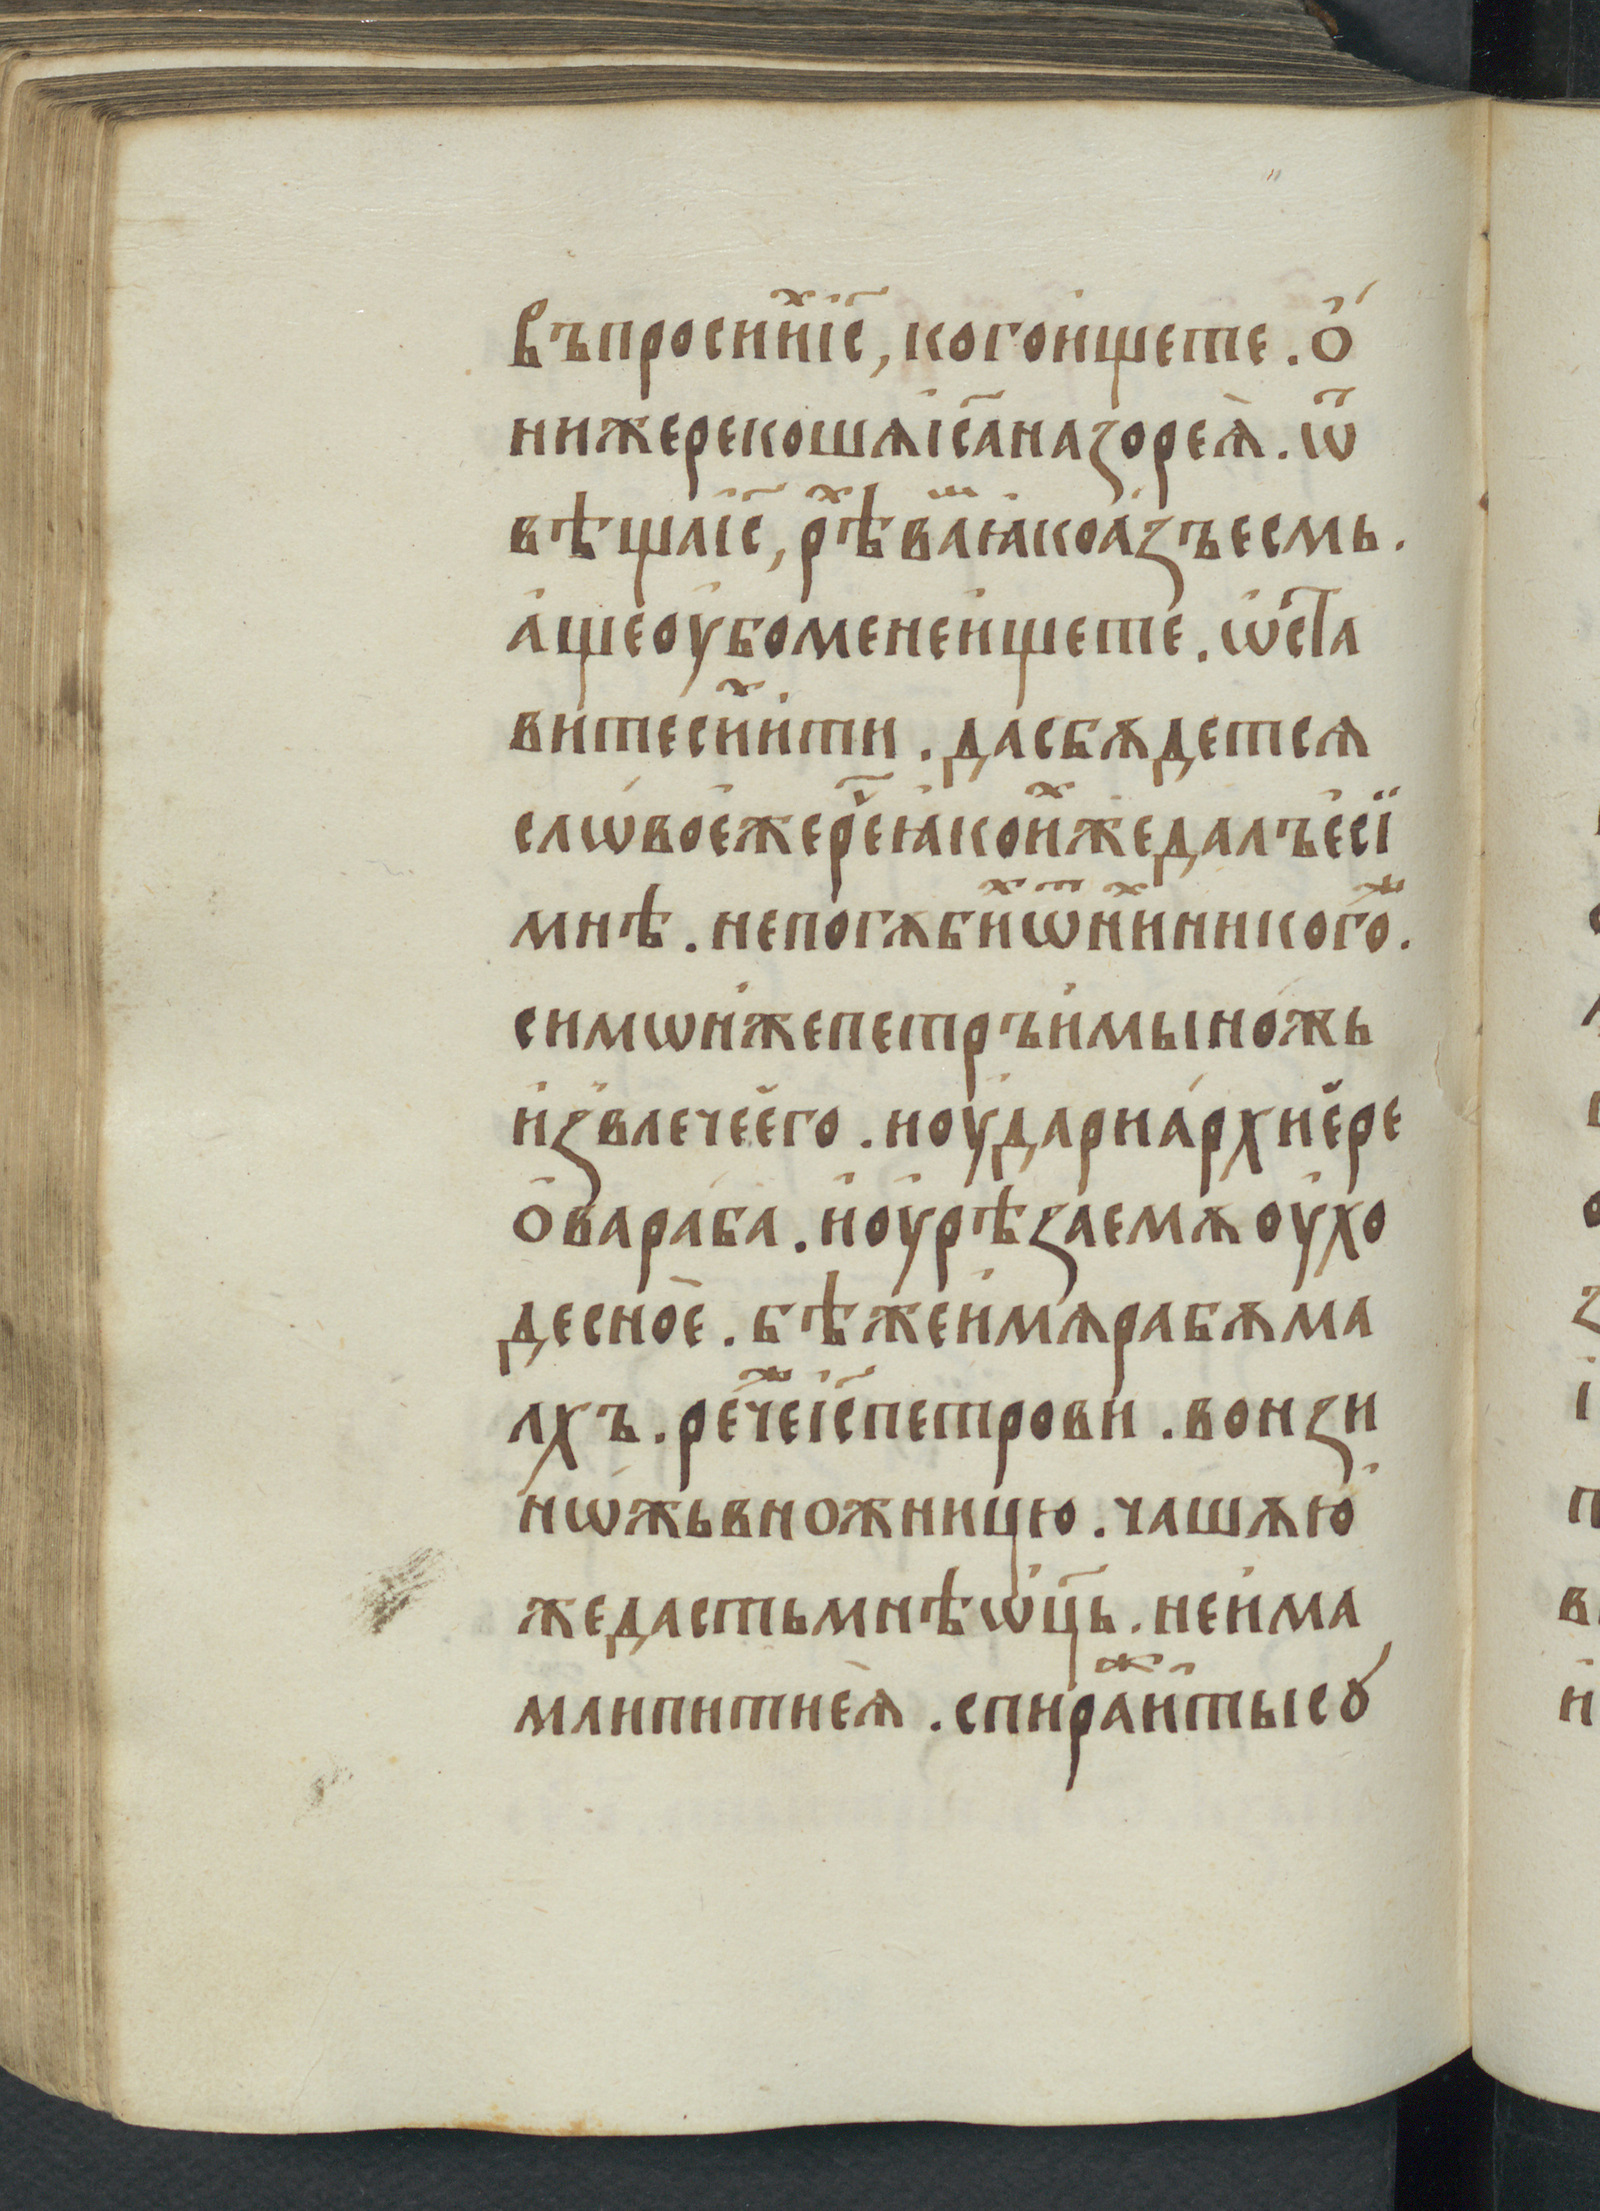 въпросиⷯи҆і҆с҃, когоищете. о҆́
нижерекошѧі҆с҃аназореѧ̀. ѿ
вѣщаі҆с҃, рѣⷯваⷨꙗ҆коа҆зъесмь.
а҆щеоу҆боменеи҆щете. ѡ҆ста
ви́тесиⷯи҆ти. дасбѫдетсѧ
слѡ́вое҆жерⷱ҇еꙗ҆коиⷯжедалъе҆сї
мнѣ. непогѫбиⷯѿниⷯникогоⷤ.
симѡни҆жепетръи҆мыно́жь
и҆звлечее҆го. ноу҆дариа́рхие҆ре
о҆вараба̀. и҆оу҆рѣзаемѫоухо
десно̀е. бѣжеи҆мѧрабѫма
лхъ. ре́чеⷤі҆с҃петрови. вонзи
нѡ́жьвножницю. чашѫю҆
жедастьмнѣѡ҆ц҃ь. неи҆ма
млипитиеѧ̀. спираⷤи҆тысꙋ